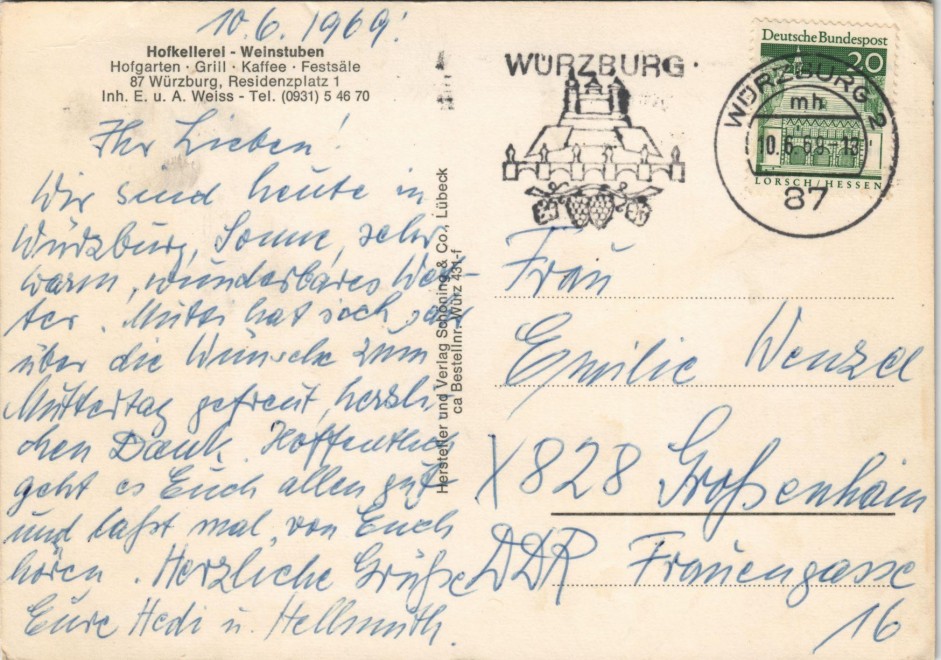 10.6.1969!
Hofkellerei - Weinstuben
Hofgarten · Grill · Kaffee · Festsäle
87 Würzburg, Residenzplatz 1
Inh. E. u. A. Weiss - Tel. (0931) 5 46 70
Ihr Lieben!
Wir sind heute in
Würzburg, Sonne, sehr
warm, wunderbares Wet-
ter. Mutter hat sich sehr
über die Wünsche zum
Muttertag gefreut, herzli-
chen Dank. Hoffentlich
geht es Euch allen gut
und laßt mal von Euch
hören. Herzliche Grüße
Eure Hedi u. Hellmuth.
Hersteller und Verlag Schöning & Co., Lübeck
ca Bestellnr. Würz 431-f
WÜRZBURG
Deutsche Bundespost
20
LORSCH/HESSEN
WÜRZBURG 2
mh
10.6.69-13
87
Frau
Emilie Wenzel
X828 Großenhain
DDR Frauengasse
16